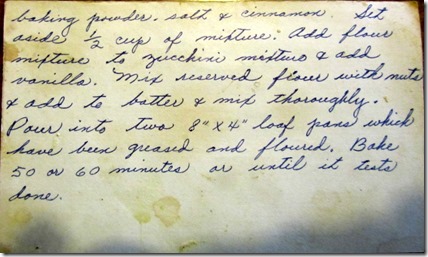 baking powder, salt & cinnamon. Set
aside 1/2 cup of mixture. Add flour
mixture to zucchini mixture & add
vanilla. Mix reserved flour with nuts
& add to batter & mix thoroughly.
Pour into two 8" X 4" loaf pans which
have been greased and floured. Bake
50 or 60 minutes or until it tests
done.